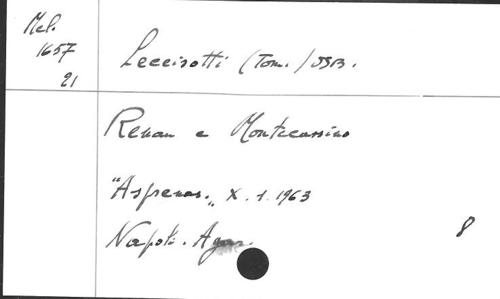 Mel.
1657
21
Leccisotti (Tom.) OSB.
Renan e Montecassino
"Asprenas.„ X. 1. 1963
Napoli. Agar.
8